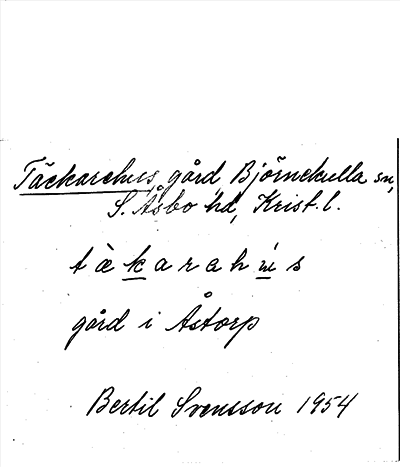 Täckarehus, gård, Björnekulla sn,
S. Åsbo hd, Krist. l.
tàkarahús
gård i Åstorp
Bertil Svensson 1954